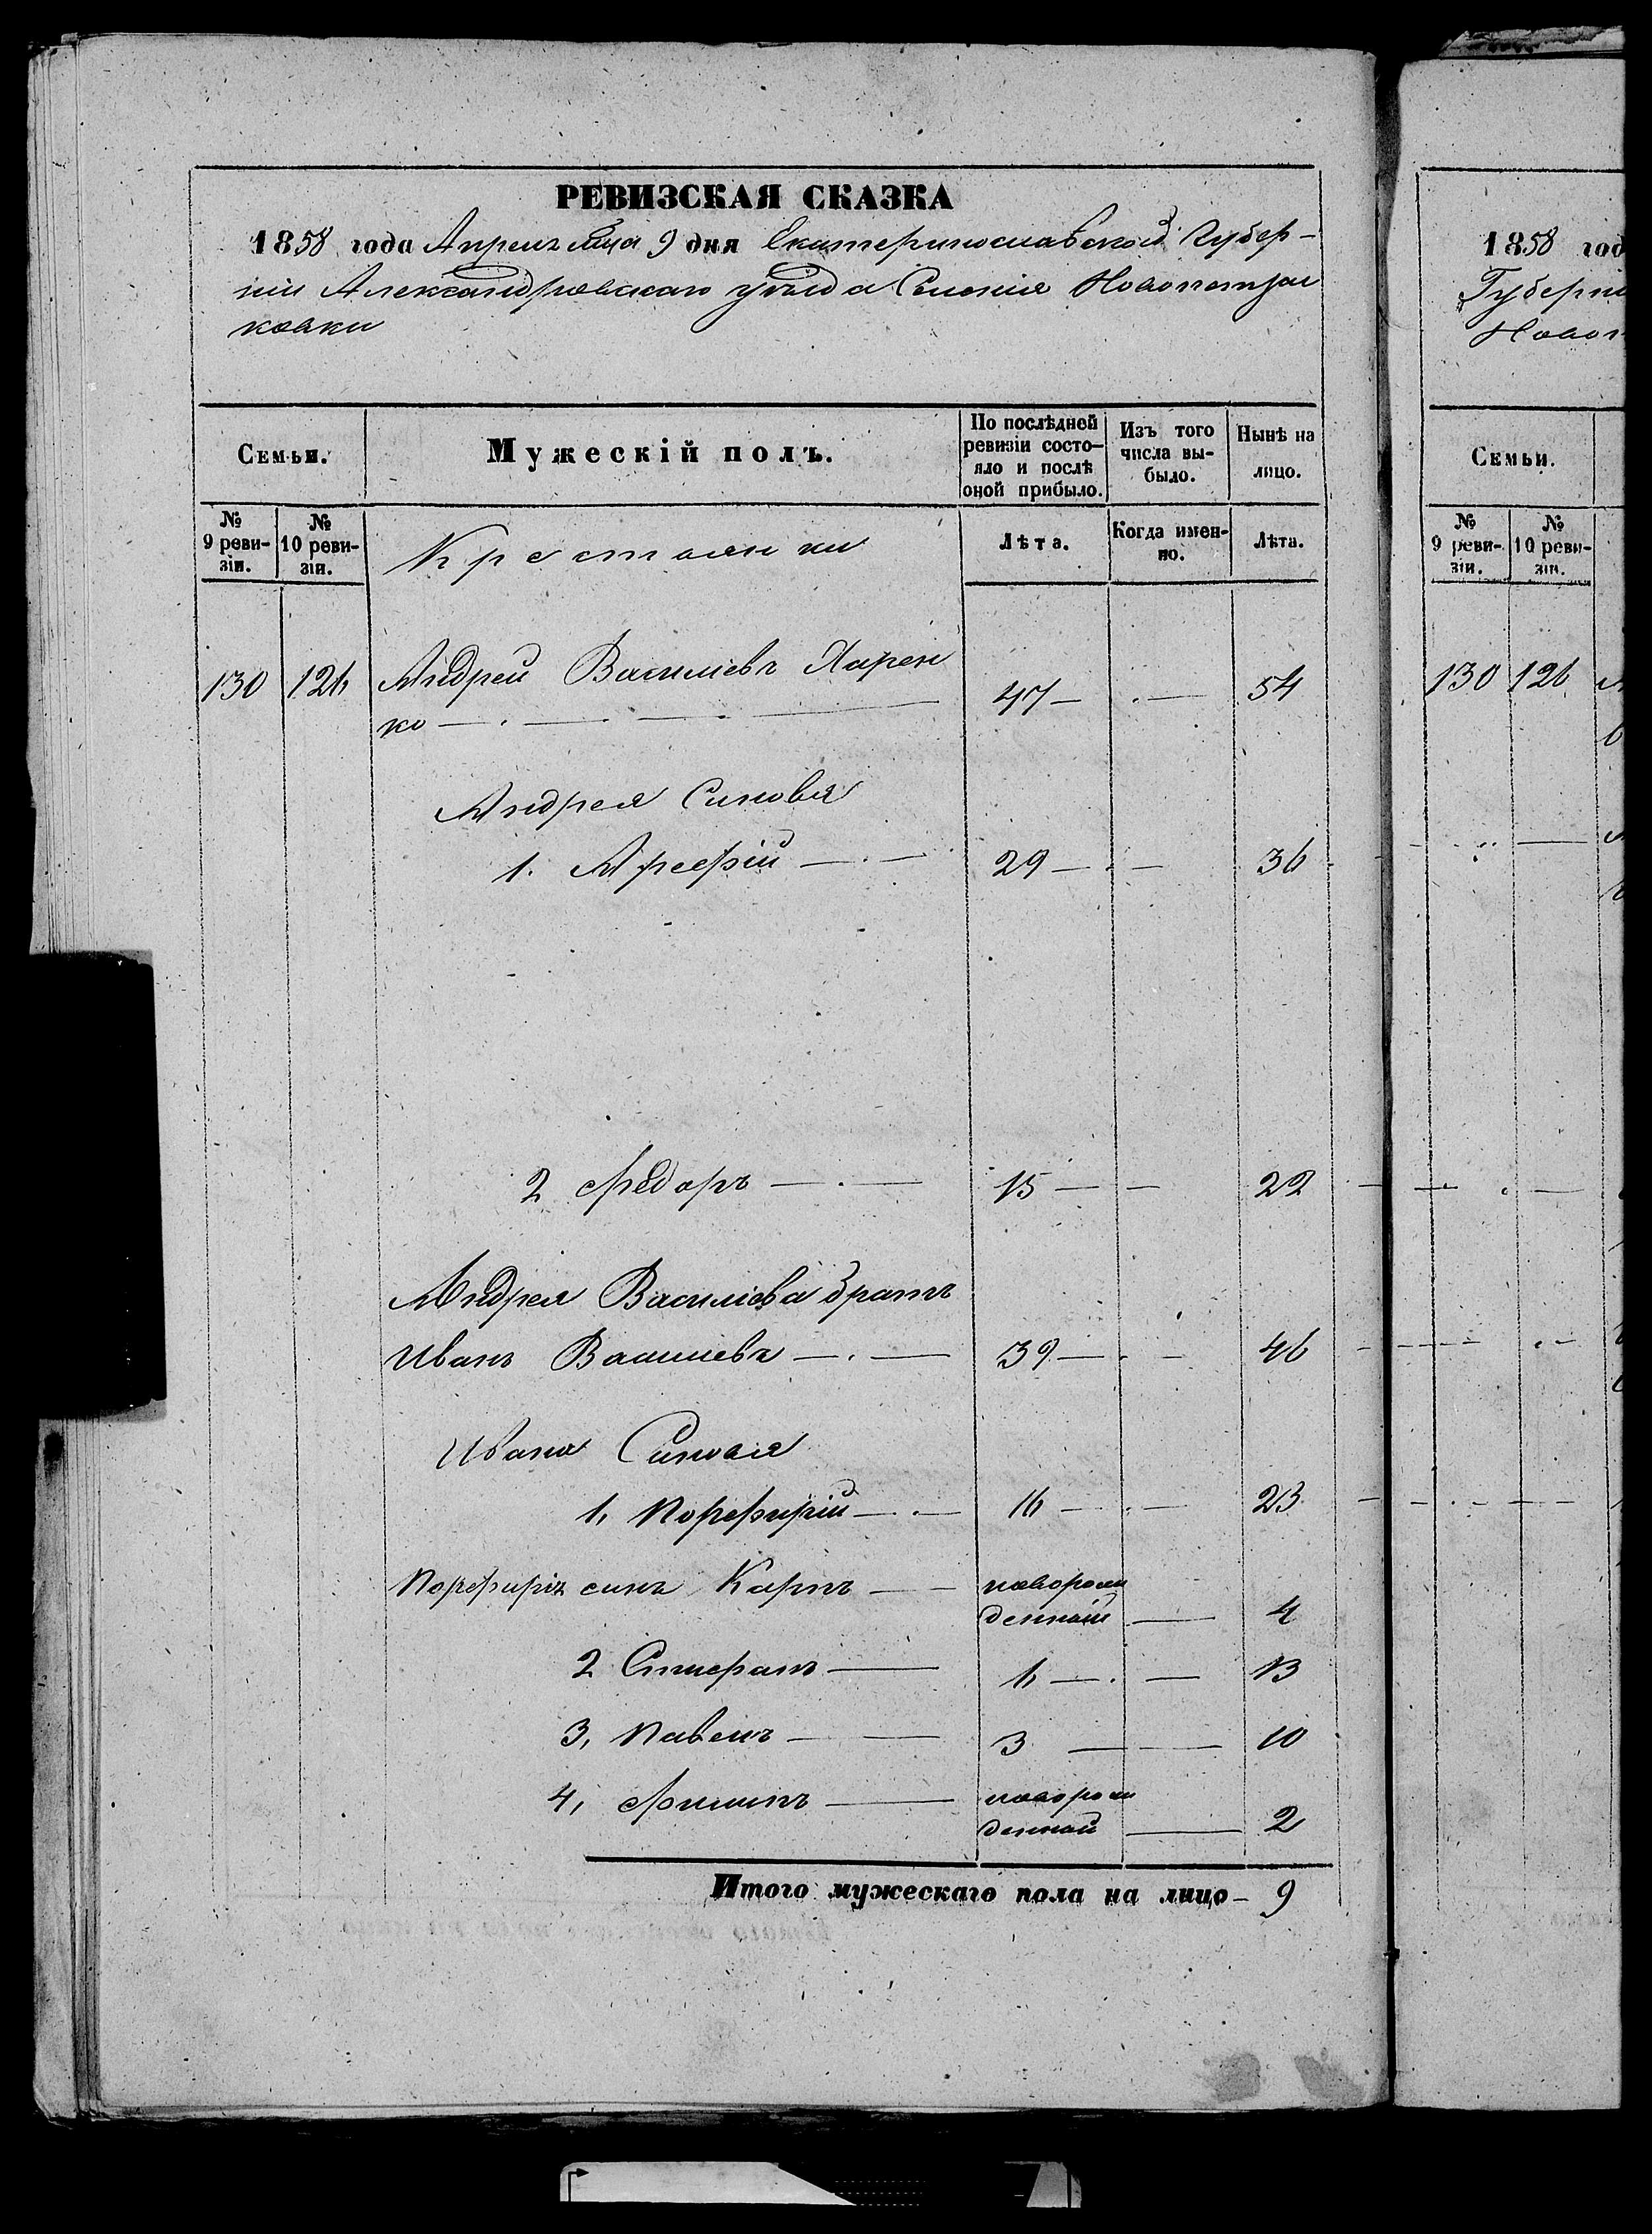 РЕВИЗСКАЯ СКАЗКА
1858 года Апрель мца 9 дня Екатеринославской Губер-
ніи Александровскаго уѣзда Селенія Новопетри
ковки
Семьи.
Мужескій полъ.
По послѣдней ревизіи состо-
яло и послѣ оной прибыло.
Изъ того числа вы-
было.
Нынѣ на лицо.
№ 9 реви-
зіи.
№ 10 реви-
зіи.
Крестьянки
Лѣта.
Когда имен-
но.
Лѣта.
130 126 Андрей Василіевъ Харен
ко — 47 — 54
Андрея Синовья
1. Арефій — 29 — 36
2 Федоръ — 15 — 22
Андрея Василіева братъ
Иванъ Василіевъ — 39 — 46
Ивана Синовья
1, Порефирій — 16 — 23
Порефирія синъ Карпъ — новорож
денный — 4
2 Стефанъ — 6 — 13
3, Павелъ — 3 — 10
4, Филипъ — новорож
денный — 2
Итого мужескаго пола на лицо — 9
1858 год
Губерні
Новоп
Семьи.
№ 9 реви-
зіи.
№ 10 реви-
зіи.
130 126